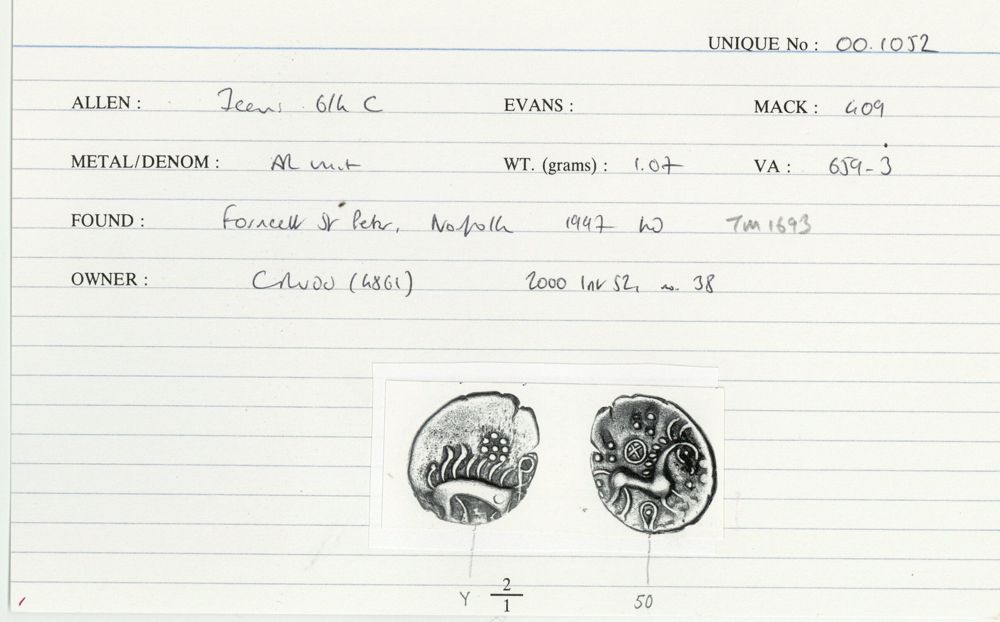 UNIQUE No : 00.1052
ALLEN : Iceni Gth C EVANS : MACK : 409
METAL/DENOM : AR unit WT. (grams) : 1.07 VA : 659-3
FOUND : Forncett St Peter, Norfolk 1997 TM 1693
OWNER : CRUDD (4861) 2000 Inv 52, no. 38
Y 2/1 50